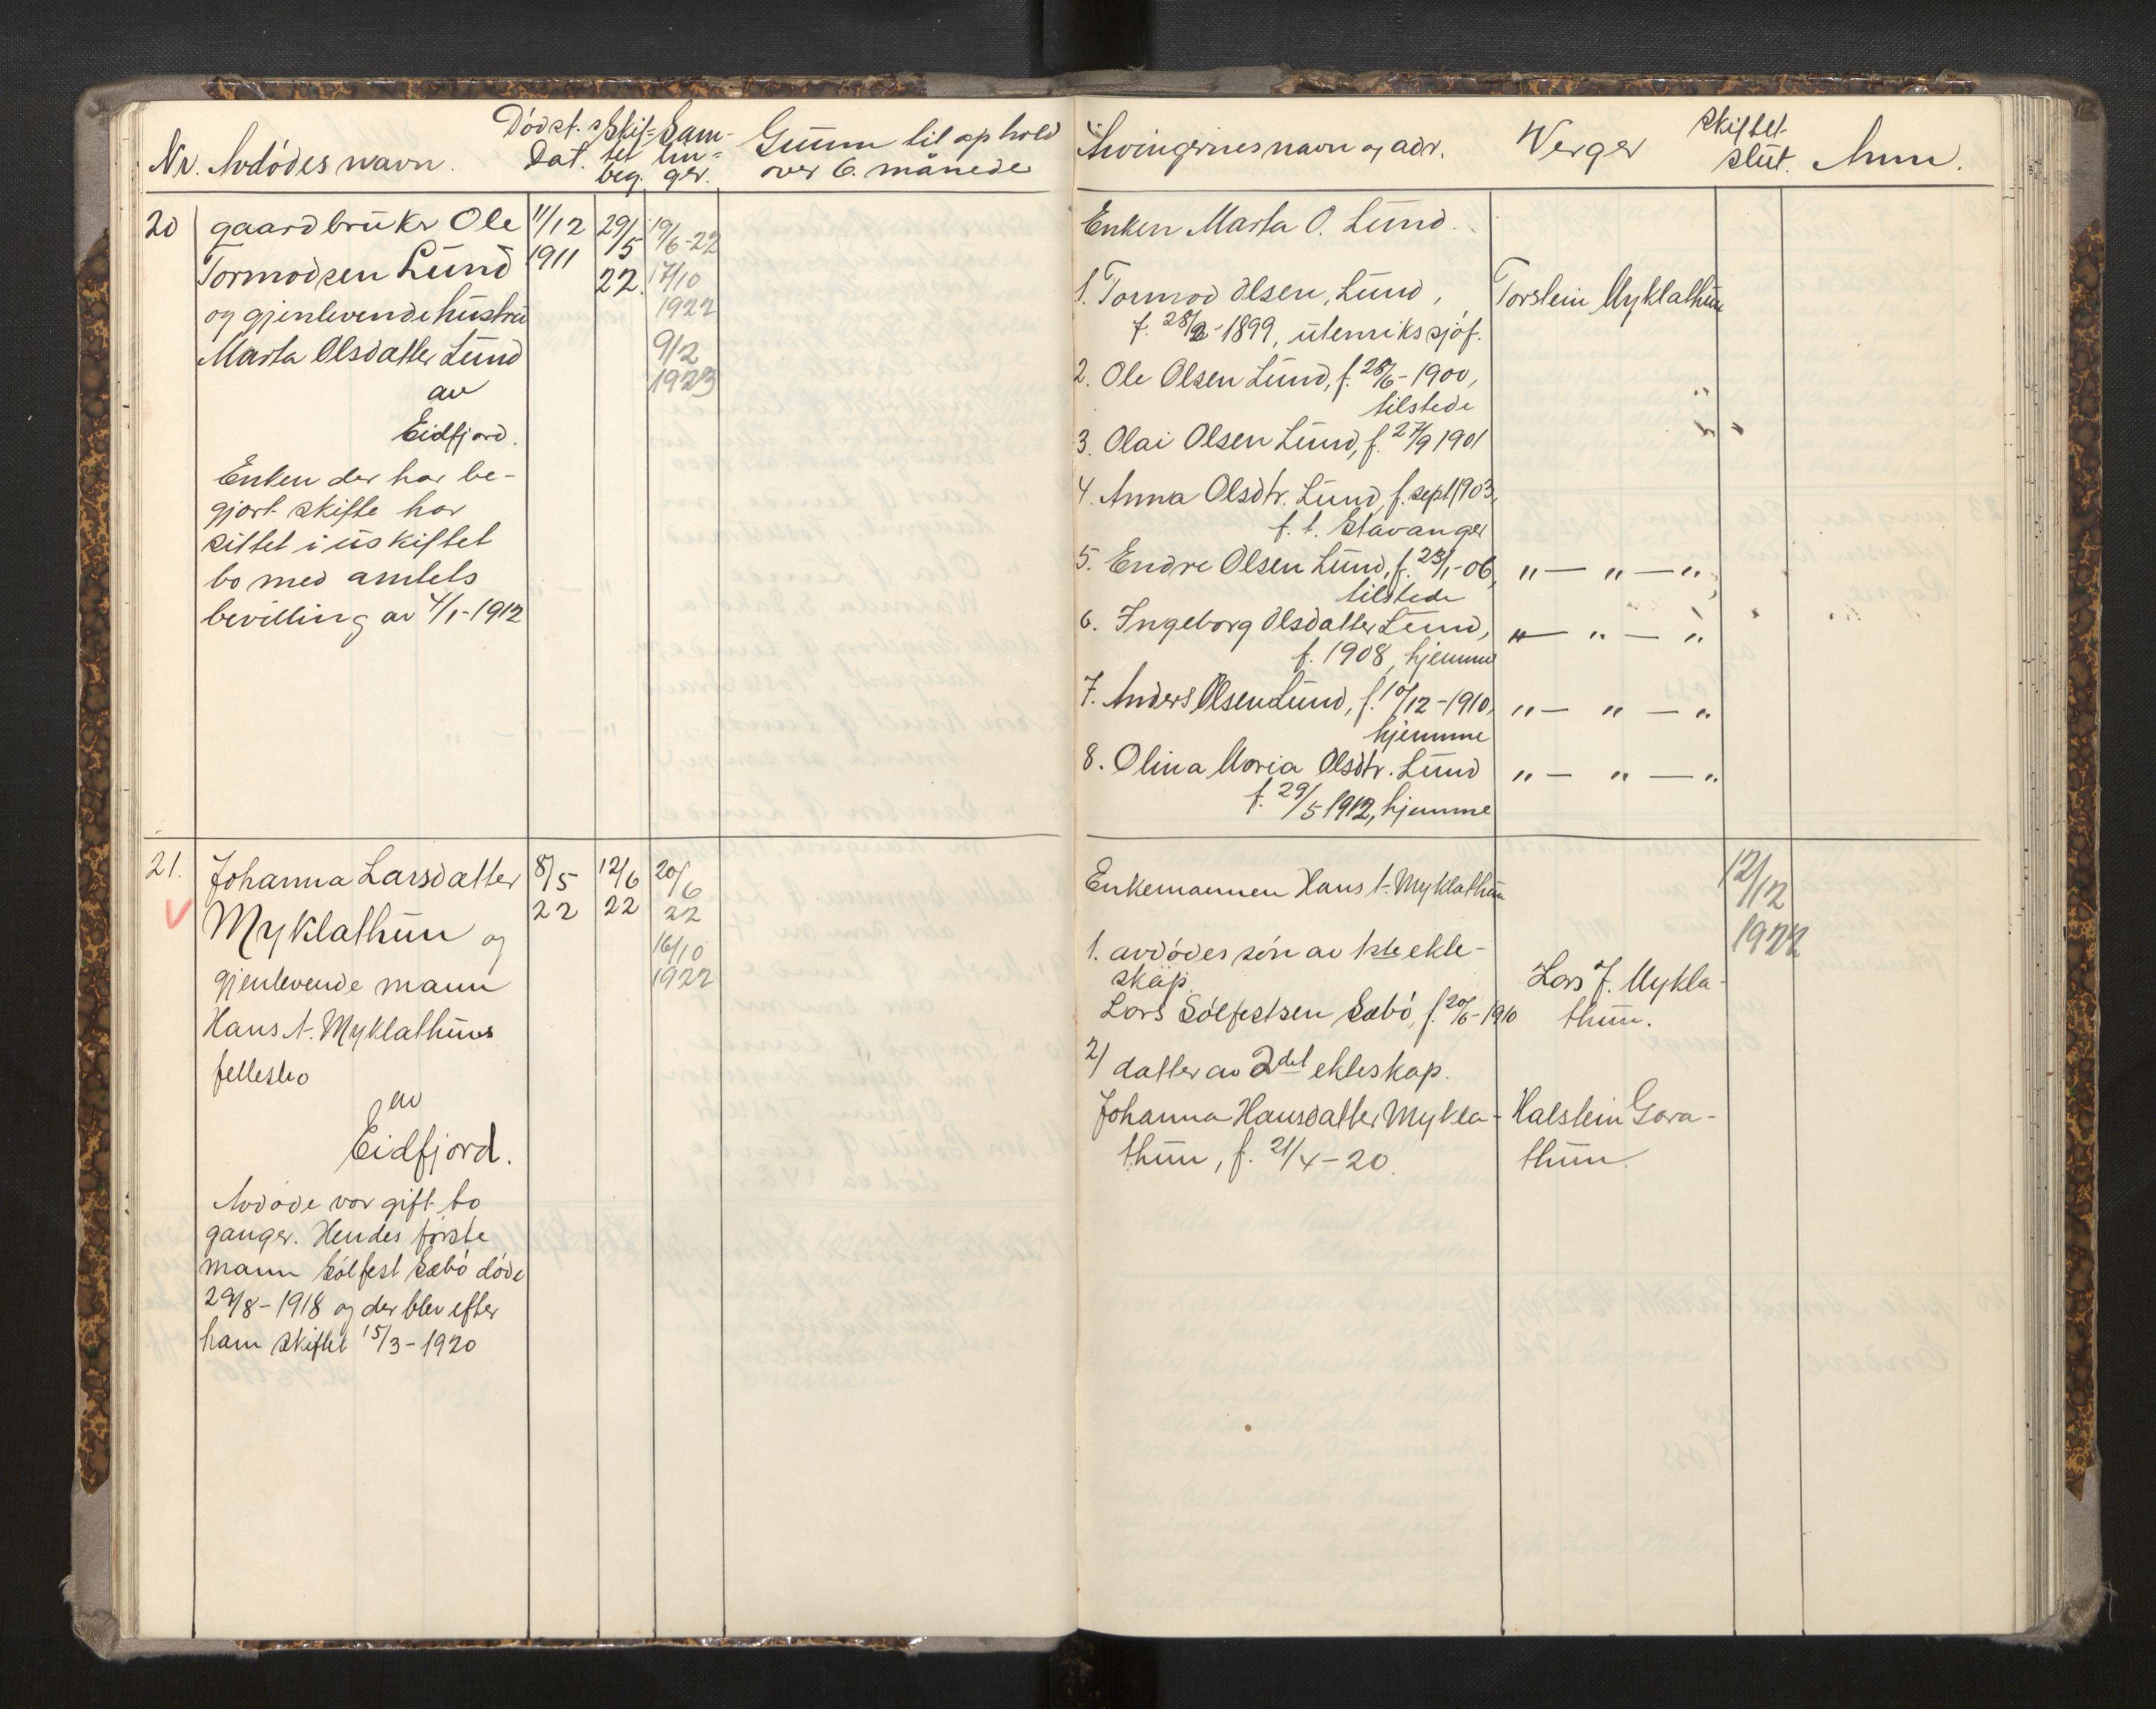 Nr. Avdødes navn. Dødst. Dat. Skiftet beg. Samlinger. Grunn til ophold over 6. månede
Arvingernes navn og adr. Verger Skiftet slut. Anm.
20 gaardbruker Ole 11/12 29/5 19/6-22
Tormodsen Lund 1911 22. 17/10
og gjenlevende hustru 1922
Marta Olsdatter Lund 9/2
av 1923
Eidfjord.
Enken der har be-
gjort skifte har
sittet i uskiftet
bo med amtets
bevilling av 4/1-1912
Enken Marta O. Lund.
1. Tormod Olsen, Lund, Torstein Myklathun
f. 28/2-1899, utenrikssjøf.
2. Ole Olsen Lund, f. 28/6-1900, "
tilstede
3. Olai Olsen Lund, f. 27/9 1901
4. Anna Olsdtr. Lund, f. sept. 1903,
f. t. Stavanger
5. Endre Olsen Lund, f. 23/1-06, " — " — "
tilstede
6. Ingeborg Olsdatter Lund, " — " — "
f. 1908, hjemme
7. Anders Olsen Lund, f. 10/12-1910, " — " — "
hjemme
8. Olina Maria Olsdtr. Lund " — " — "
f. 29/5 1912, hjemme
21. Johanna Larsdatter 8/5 12/6 20/6
Myklathun og 22 22 22
gjenlevende mann 16/10
Hans A. Myklathuns 1922
fellesbo
av
Eidfjord.
Avdøde var gift to
ganger. Hendes første
mann Sølfest Sæbø døde
29/8-1918 og der blev efter
ham skiftet 15/3-1920
Enkemannen Hans A. Myklathun 12/12
1922
1. avdødes søn av 1ste ekte-
skap. Lars J. Mykla-
Lars Sølfestsen Sæbø, f. 20/6-1910 thun.
2) datter av 2det ekteskap.
Johanna Hansdatter Mykla- Halstein Gara-
thun, f. 21/4-20. thun.